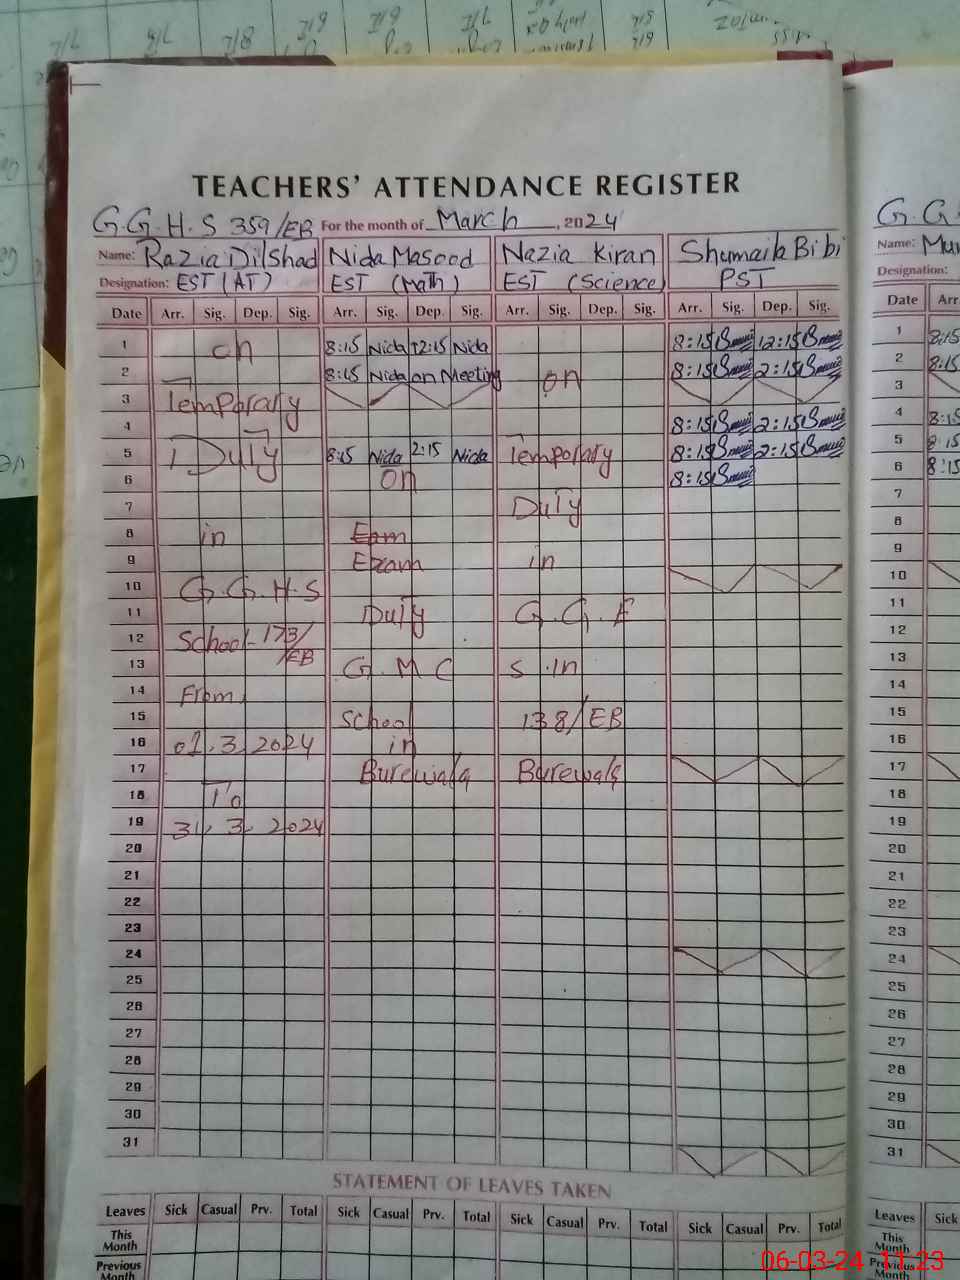 TEACHERS' ATTENDANCE REGISTER
G.G.H.S 359/EB For the month of March, 2024
Name: Razia Dilshad Nida Masood Nazia Kiran Shumaila Bibi
Designation: EST (AT) EST (Math) EST (Science) PST
Date Arr. Sig. Dep. Sig. Arr. Sig. Dep. Sig. Arr. Sig. Dep. Sig. Arr. Sig. Dep. Sig.
1 on 8:15 Nida 12:15 Nida 8:15 12:15
2 8:15 Nida on Meeting on 8:15 2:15
3 Temporary
4 8:15 2:15
5 Duty 8:15 Nida 2:15 Nida Temporary 8:15 2:15
6 on 8:15
7 Duty
8 in Eam
9 Exam in
10 G.G.H.S
11 Duty G.G.E
12 School-173/EB
13 G.M.C S in
14 From
15 School 138/EB
16 01.3.2024 in
17 Burewala Burewala
18 To
19 31.3.2024
20
21
22
23
24
25
26
27
28
29
30
31
STATEMENT OF LEAVES TAKEN
Leaves Sick Casual Prv. Total Sick Casual Prv. Total Sick Casual Prv. Total Sick Casual Prv. Total
This Month
Previous Month
Name:
Designation:
Date Arr.
1 8:15
2 8:15
3
4 8:15
5 8:15
6 8:15
7
8
9
10
11
12
13
14
15
16
17
18
19
20
21
22
23
24
25
26
27
28
29
30
31
Leaves Sick
This Month
Previous Month
06-03-24 11:23